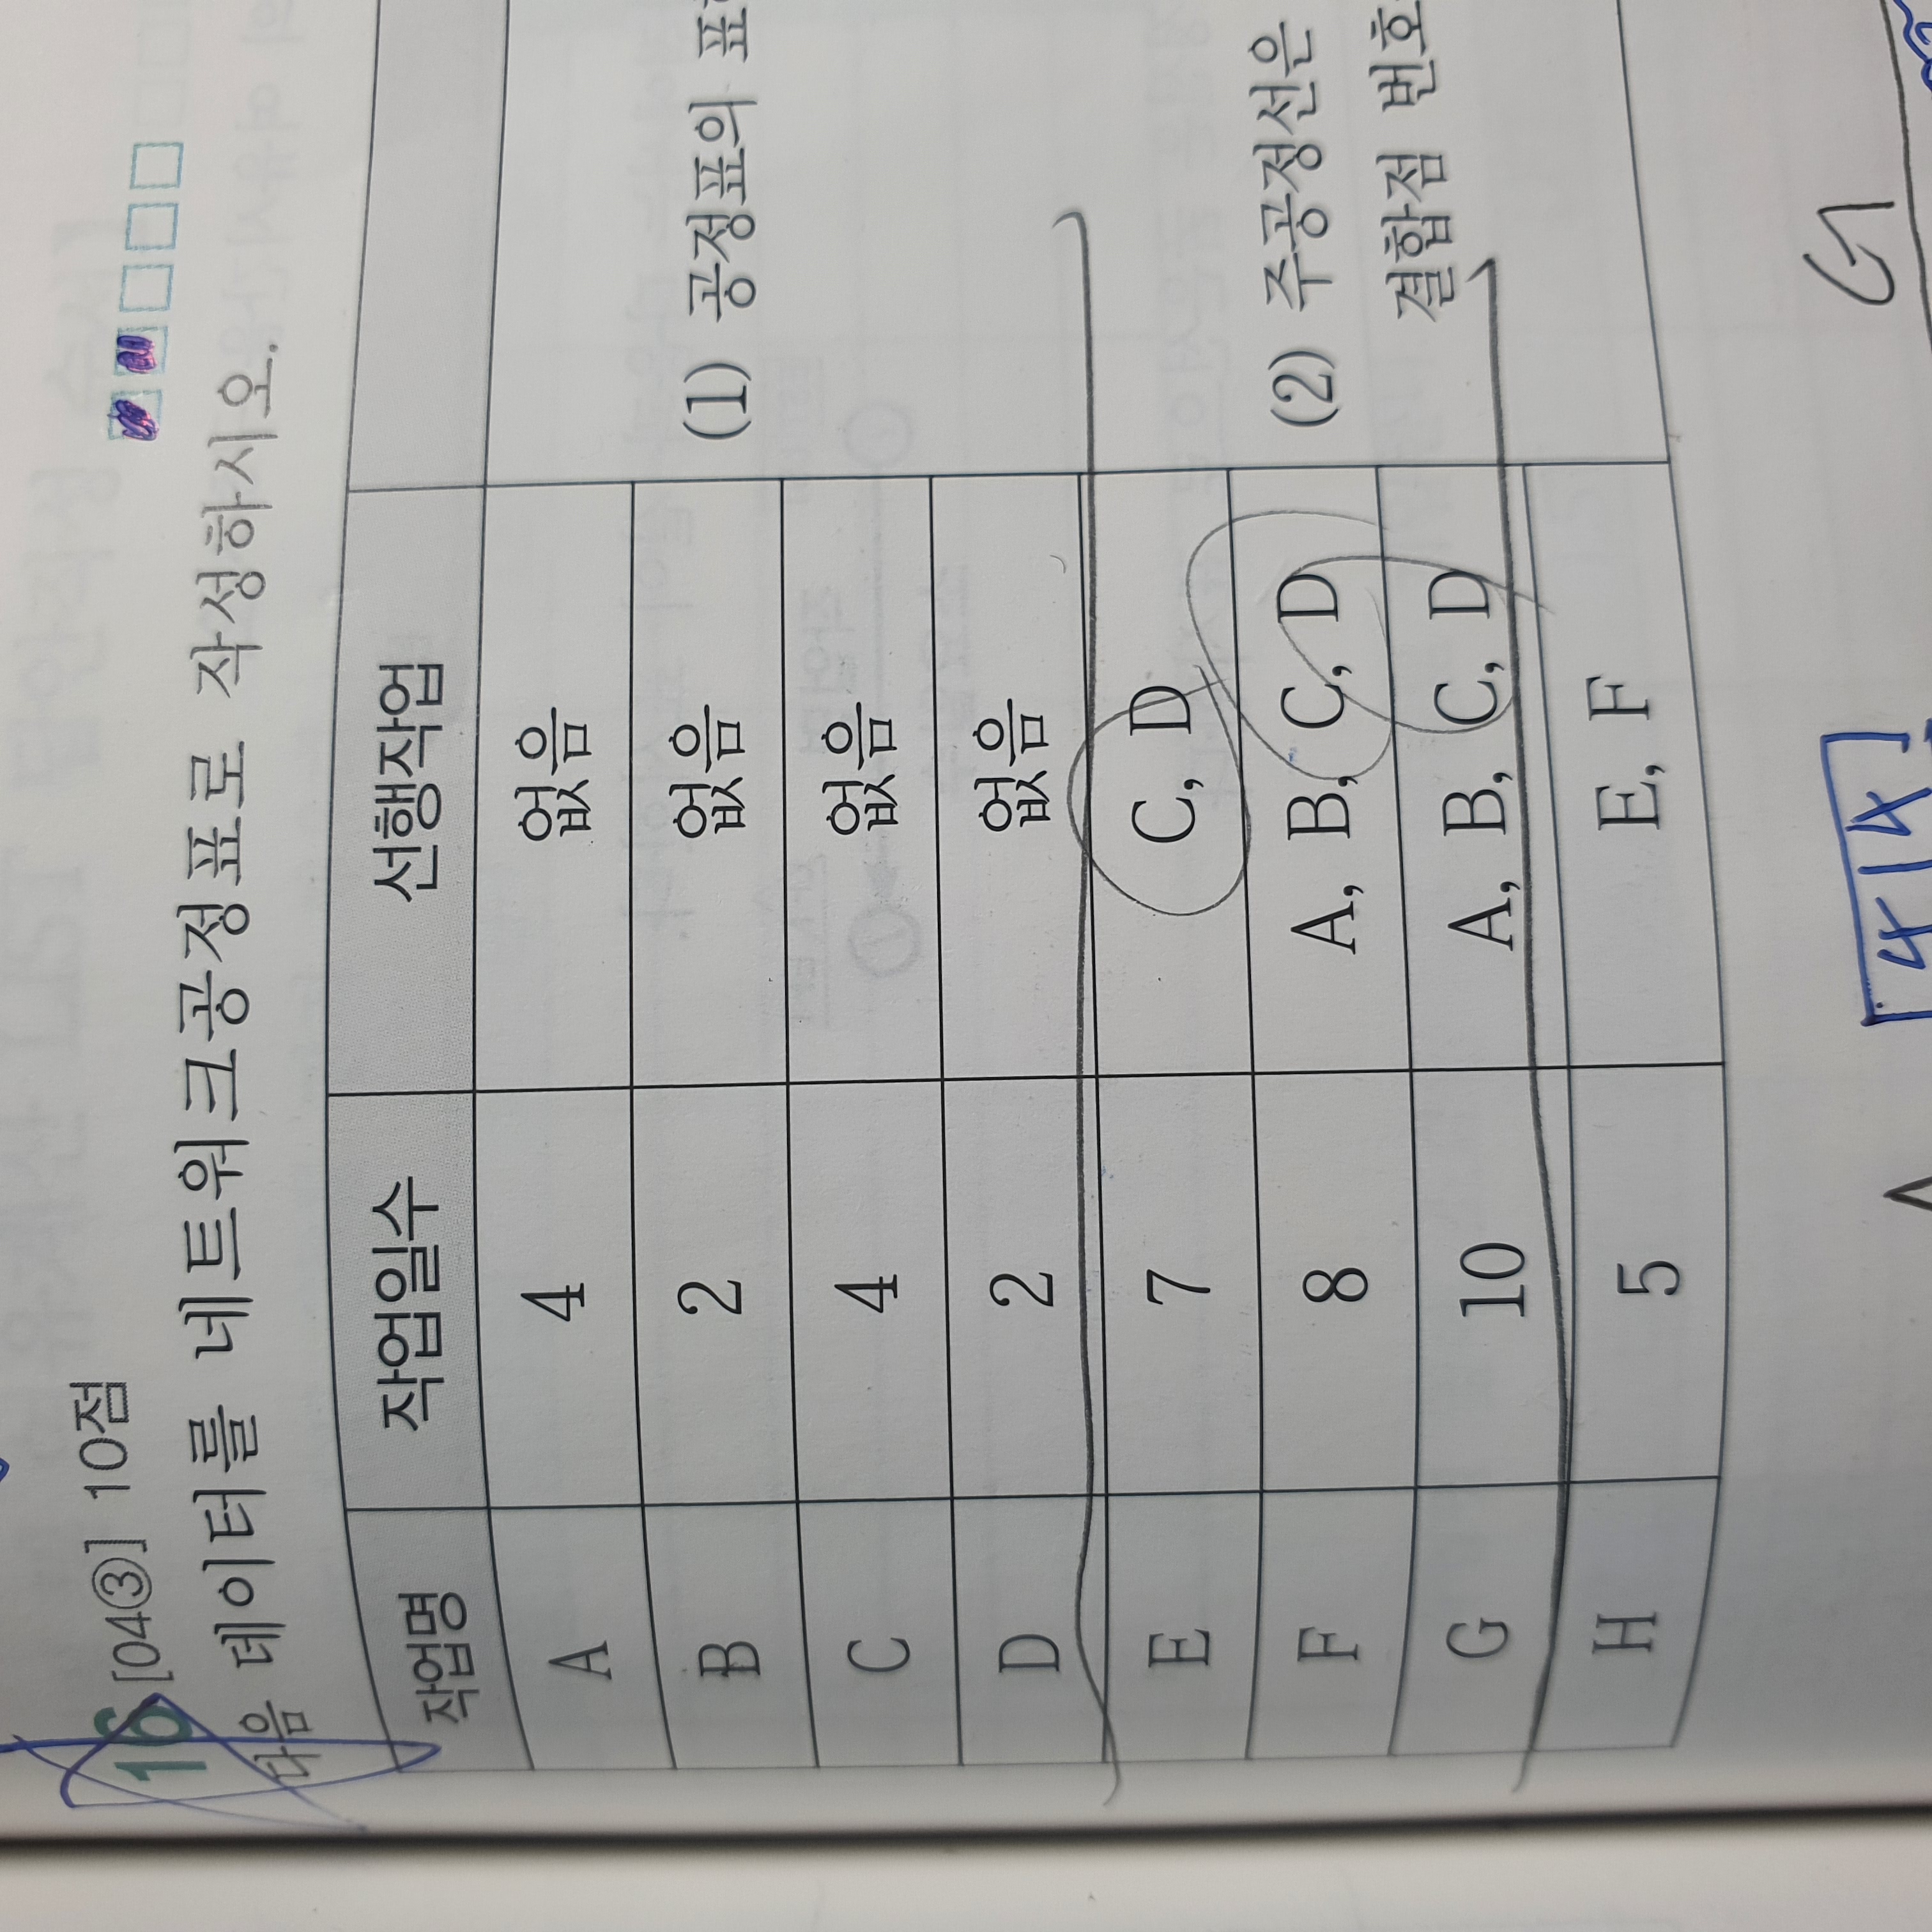 16 [04③] 10점
다음 데이터를 네트워크공정표로 작성하시오.
작업명 작업일수 선행작업
A 4 없음
B 2 없음
C 4 없음
D 2 없음
E 7 C, D
F 8 A, B, C, D
G 10 A, B, C, D
H 5 E, F
(1) 공정표의
(2) 주공정선은
결합점 번호
G